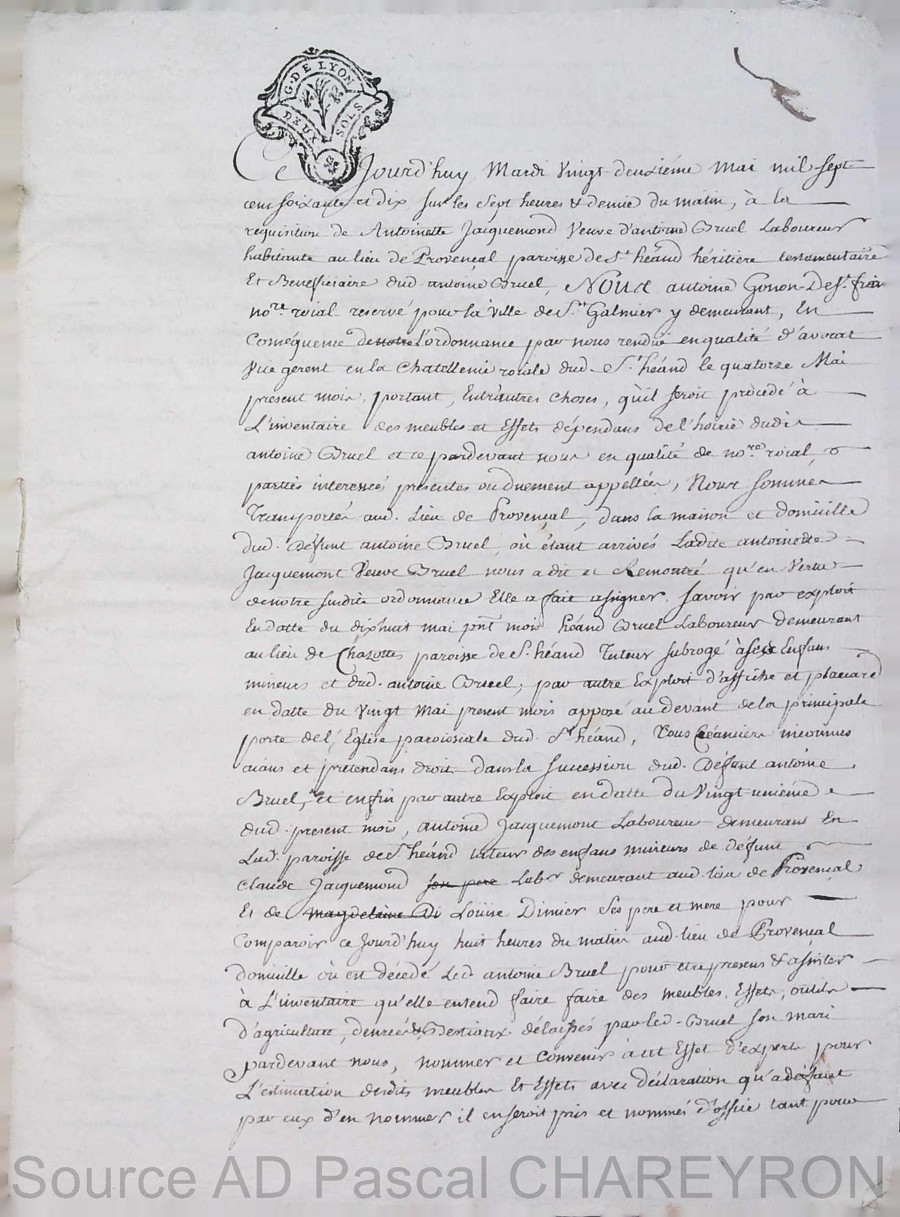 G. DE LYON
DEUX SOLS
Ce Jourd'huy Mardi Vingt deuxiéme Mai mil sept
cent soixante et dix sur les sept heures & demie du matin, à la
requisition de Antoinette Jacquemond Veuve d'antoine Bruel Laboureur
habitante au lieu de Provencal paroisse de St. héand héritiere testamentaire
Et Beneficiaire dud. antoine Bruel, Nous antoine Gonon De St. frin
nore. roial reservé pour la ville de St. Galmier y demeurant, En
Conséquence de notre L'ordonnance par nous rendüe en qualité d'avocat
Vice gerent en la Chatellenie roiale dud. St. héand le quatorze Mai
present mois, portant, Entr'autres choses, qu'il seroit procedé à
L'inventaire des meubles et Effets dépendans de l'hoirie dudit
antoine Bruel et ce pardevant nous en qualité de nore. roial,
parties interessés presentes ou duement appellées, Nous sommes
Transportés aud. Lieu de Provençal, dans la maison et domicille
dud. Défunt antoine Bruel, où étant arrivés Ladite antoinette
Jacquemont Veuve Bruel nous a dit et Remontré qu'en Vertu
de notre susdite ordonnance Elle a fait asigner, savoir par exploit
En datte du dix huit mai pnt. mois héand Bruel Laboureur demeurant
au lieu de Chazottes paroisse de St. héand Tuteur subrogé à ses Enfans
mineurs et dud. antoine Bruel, par autre Exploit d'affiche et placard
en datte du Vingt Mai present mois apposé au devant de la principale
porte de l'Eglise paroissiale dud. St. héand, Tous Créanciers inconnus
aians et prétendans droit dans la succession dud. Défunt antoine
Bruel, et enfin par autre Exploit en datte du Vingt unième
dud. present mois, antoine Jacquemont Laboureur demeurant En
Lad. paroisse de St. héand tuteur des enfans mineurs de défunt
Claude Jacquemond son pere Labr. demeurant aud. lieu de Provencal
Et de magdelaine Di Loüise Dimier ses pere et mere pour
Comparoir ce Jourd'huy huit heures du matin aud. lieu de Provençal
domicille où est décedé Led. antoine Bruel pour etre presens & asister
à L'inventaire qu'elle entend faire faire des meubles, Effets, outils
d'agriculture, denrées & Bestiaux délaissés par led. Bruel son mari
pardevant nous, nommer et Convenir à cet Effet d'experts pour
L'estimation desdits meubles Et Effets avec déclaration qu'a défaut
par eux d'en nommer il en seroit pris et nommés d'office tant pour
Source AD Pascal CHAREYRON